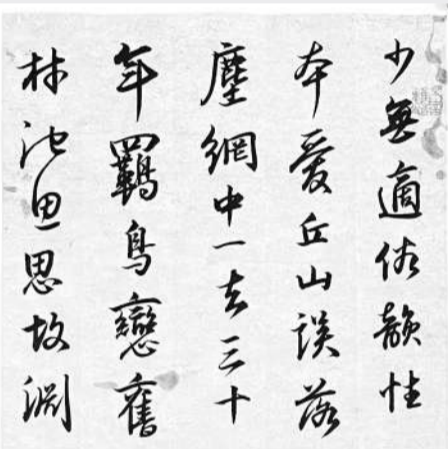 少無適俗韻性
本愛丘山誤落
塵網中一去三十
年羈鳥戀舊
林池魚思故淵